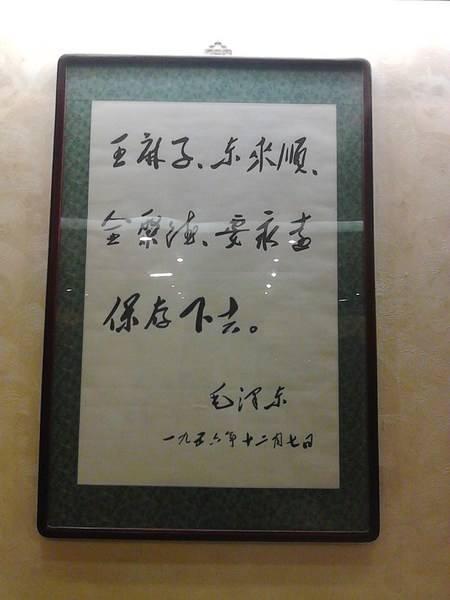 王麻子、东來順、
全聚德、要永远
保存下去。
毛泽东
一九五六年十二月七日